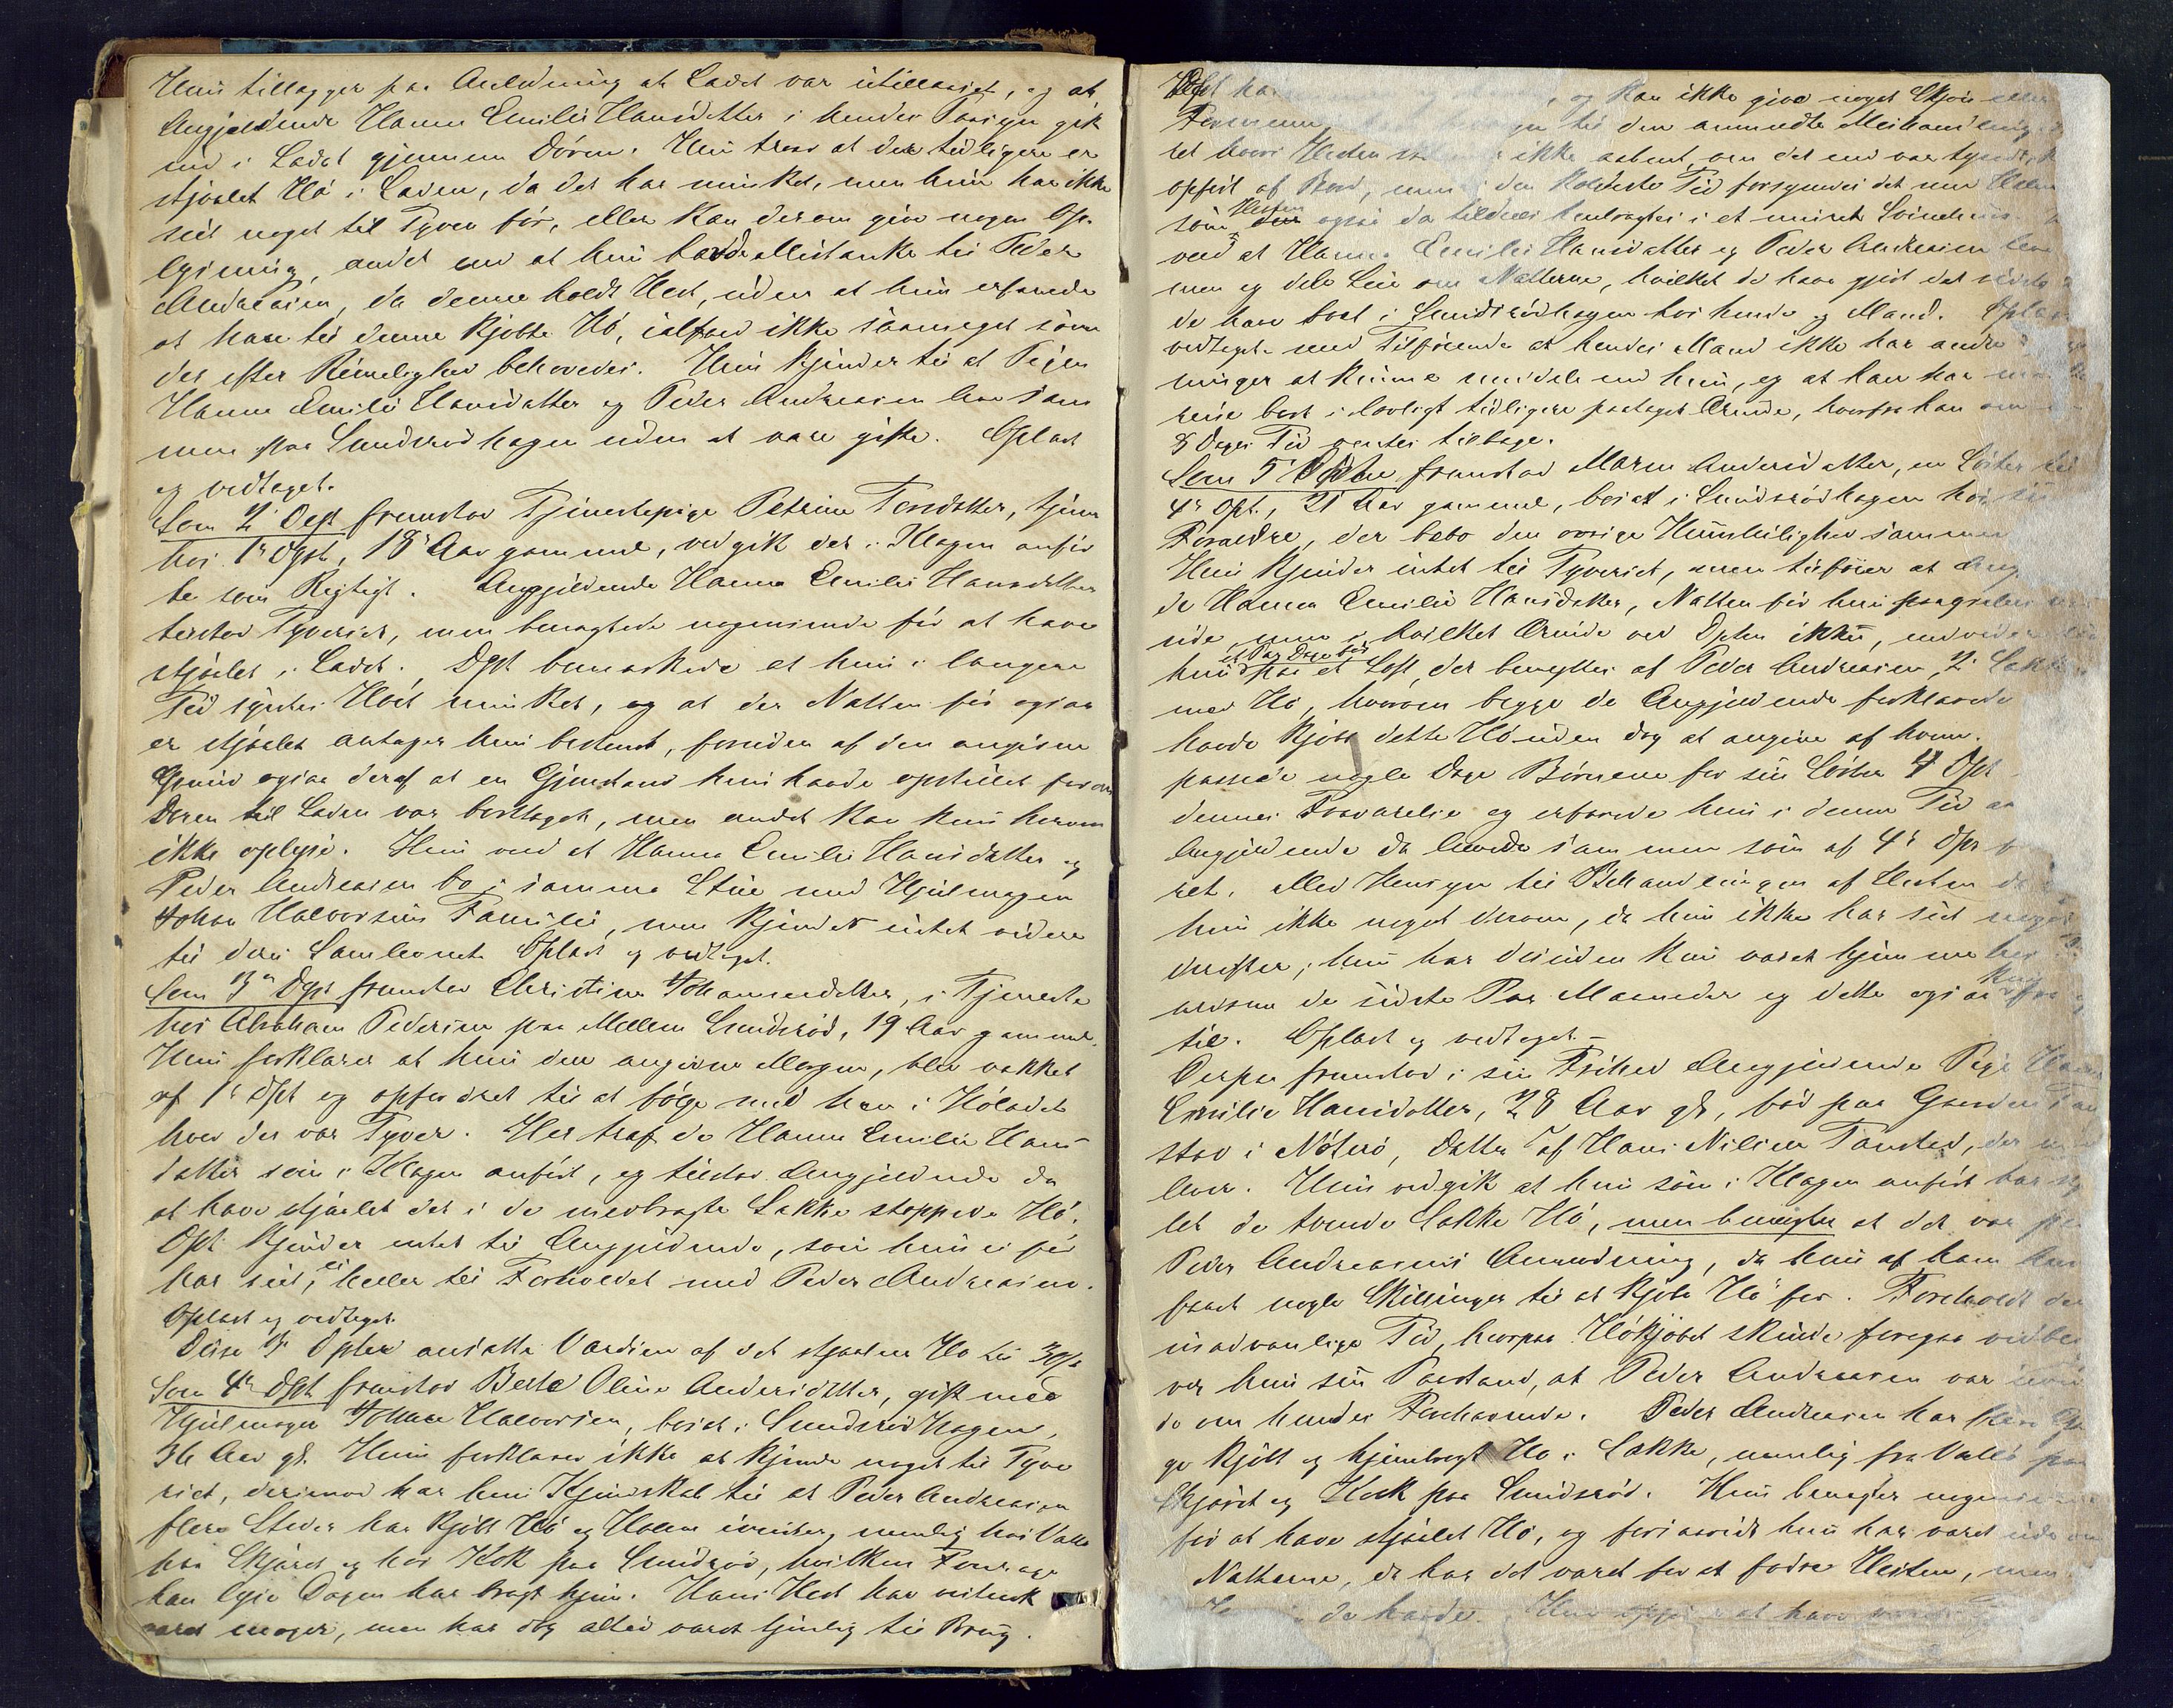 Hun tillægger paa Anledning at Ladet var utillaaset, og at
Angjældende Hanne Emilie Hansdatter i hendes Paasyn gik
ind i Ladet gjennem Døren. Hun troer at der tidligere er
stjaalet Hø i Laden, da det har minket, men hun har ikke
seet noget til Tyven før, eller kan derom give nogen Op-
lysning, andet end at hun havde Mistanke til Peder
Andreasen, da denne holdt Hest, uden at hun erfarede
at han til denne kjøbte Hø, ialfald ikke saameget som
der efter Rimelighed behøvedes. Hun kjender til at Pigen
Hanne Emilie Hansdatter og Peder Andreasen leve sam
men paa Sundsrødhagen uden at være gifte. Oplæst
og vedtaget.
Som 2 Dept fremstod Tjenestepige Petrine Torsdatter, tjener
hos 1ste Dpt, 18 Aar gammel, vedgik det i Klagen anfør
te som Rigtigt. Angjeldende Hanne Emilie Hansdatter
tilstod Tyveriet, men benægtede nogensinde før at have
stjaalet i Ladet. Dpt bemærkede at hun i længere
Tid syntes Høet minket, og at der Natten før ogsaa
er stjaalet antager hun bestemt, foruden af den angivne
Grund ogsaa deraf at en Gjenstand hun havde opstillet foran
Døren til Laden var borttaget, men andet kan hun herom
ikke oplyse. Hun ved at Hanne Emilie Hansdatter og
Peder Andreasen bo i samme Stue med Hjulmager
Johan Halvorsens Familie, men kjender intet videre
til deres Samlevnet. Oplæst og vedtaget.
Som 3die Dpt fremstod Christine Johannesdatter, i Tjeneste
hos Abraham Pedersen paa Mellem Sundsrød, 19 Aar gammel.
Hun forklarer at hun den angivne Morgen, blev vækket
af 1ste Dpt og opfordret til at følge med hen i Høladet
hvor der var Tyver. Her traf de Hanne Emilie Hans-
datter som i Klagen anført, og tilstod Angjeldende da
at have stjaalet det i de medbragte Sække stoppede Hø.
Dpt kjender intet til Angjeldende, som hun ei før
har seet, ei heller til Forholdet med Peder Andreasen.
Oplæst og vedtaget.
Disse 3 Dpter ansatte Værdien af det stjaalne Hø til 30 s
Som 4de Dpt fremstod Berte Oline Andersdatter, gift med
Hjulmager Johan Halvorsen, boset i Sundsrødhagen,
36 Aar gl. Hun forklarer ikke at kjende noget til Tyve
riet, derimod har hun Kjendskab til at Peder Andreasen
flere Steder har kjøbt Hø og Halm ivinter, nemlig hos Valle
paa Skjæret og hos Kok paa Sundsrød, hvilken Fourage
han lyse Dagen har bragt hjem. Hans Hest har vistnok
været mager, men har dog altid været tjenlig til Brug.
og kan ikke give noget Skjøn eller
til den anmeldte Mishandling
ret hvori Hesten ikke aabent, om det end var tyndt
opført af Bord, men i den koldeste Tid forsynedes det med Halm
som Hesten ogsaa da tildeels henbragtes i et muret Svinehuus.
ved at Hanne Emilie Hansdatter og Peder Andreasen leve
men og dele Leie om Nætterne, hvilket de have gjort det sidste
de have boet i Sundsrødhagen hos hende og Mand. Oplæst
vedtaget med Tilføiende at hendes Mand ikke har andre
ninger at kunne meddele end hun, og at han har
reise bort i lovligt tidligere paataget Ærinde, hvorfra han om
8 Dages Tid ventes tilbage.
Som 5te Dpt fremstod Maren Andersdatter, en Søster til
4de Dpt., 21 Aar gammel, boset i Sundsrødhagen hos sin
Forældre, der bebo den øvrige Huusleilighed sammen
Hun kjender intet til Tyveriet, men tilføier at Ang
de Hanna Emilie Hansdatter, Natten før hun paagrebes
ude, men i hvilket Ærinde ved Dpten ikke, endvidere
hun et Par Dage før paa et Loft, der benyttes af Peder Andreasen, 2 Sække
med Hø, hvorom begge de Angjeldende forklarede
havde kjøbt dette Hø uden dog at angive af hvem.
passede nogle Dage Børnene for sin Søster 4 Dpt
dennes Fraværelse og erfarede hun i denne Tid at
Angjeldende da levede sammen som af 4de Dpt
ret. Med Hensyn til Behandlingen af Hesten
hun ikke noget derom, da hun ikke har seet noget
derefter; hun har desuden kun været hjemme hos
ældrene de sidste Par Maaneder og dette ogsaa kun fra
til. Oplæst og vedtaget.-
Derpaa fremstod i sin Frihed Angjeldende Pige Hanne
Emilie Hansdatter, 28 Aar gl., fød paa Gaarden
stad i Nøterø, Datter af Hans Nilsen Tanstad, der
lever. Hun vedgik at hun som i Klagen anført har stj
let de tvende Sække Hø, men benegter at det var paa
Peder Andreasens Anmodning, da hun af ham har
faaet nogle Skillinger til at kjøbe Hø for. Foreholdt den
usædvanlige Tid, hvorpaa Høkjøbet skulde foregaa vedbli
ver hun sin Paastand, at Peder Andreasen var
de om hendes Forehavende. Peder Andreasen har flere Ga
ge kjøbt og hjembragt Hø i Sække, nemlig fra Valle paa
Skjæret og Kock paa Sundsrød. Hun benegter nogensinde
før at have stjaalet Hø, og forsaavidt hun har været ude om
Nætterne, da har det været for at fodre Hesten, men
de havde. at have